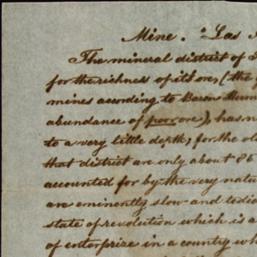 Mine. Las
The mineral district of
for the richness of its ore, (the
mines according to Baron
abundance of poor ore), has
to a very little depth; for the
that district are only about 86
accounted for by the very
are eminently slow and
state of revolution which is a
of enterprize in a country